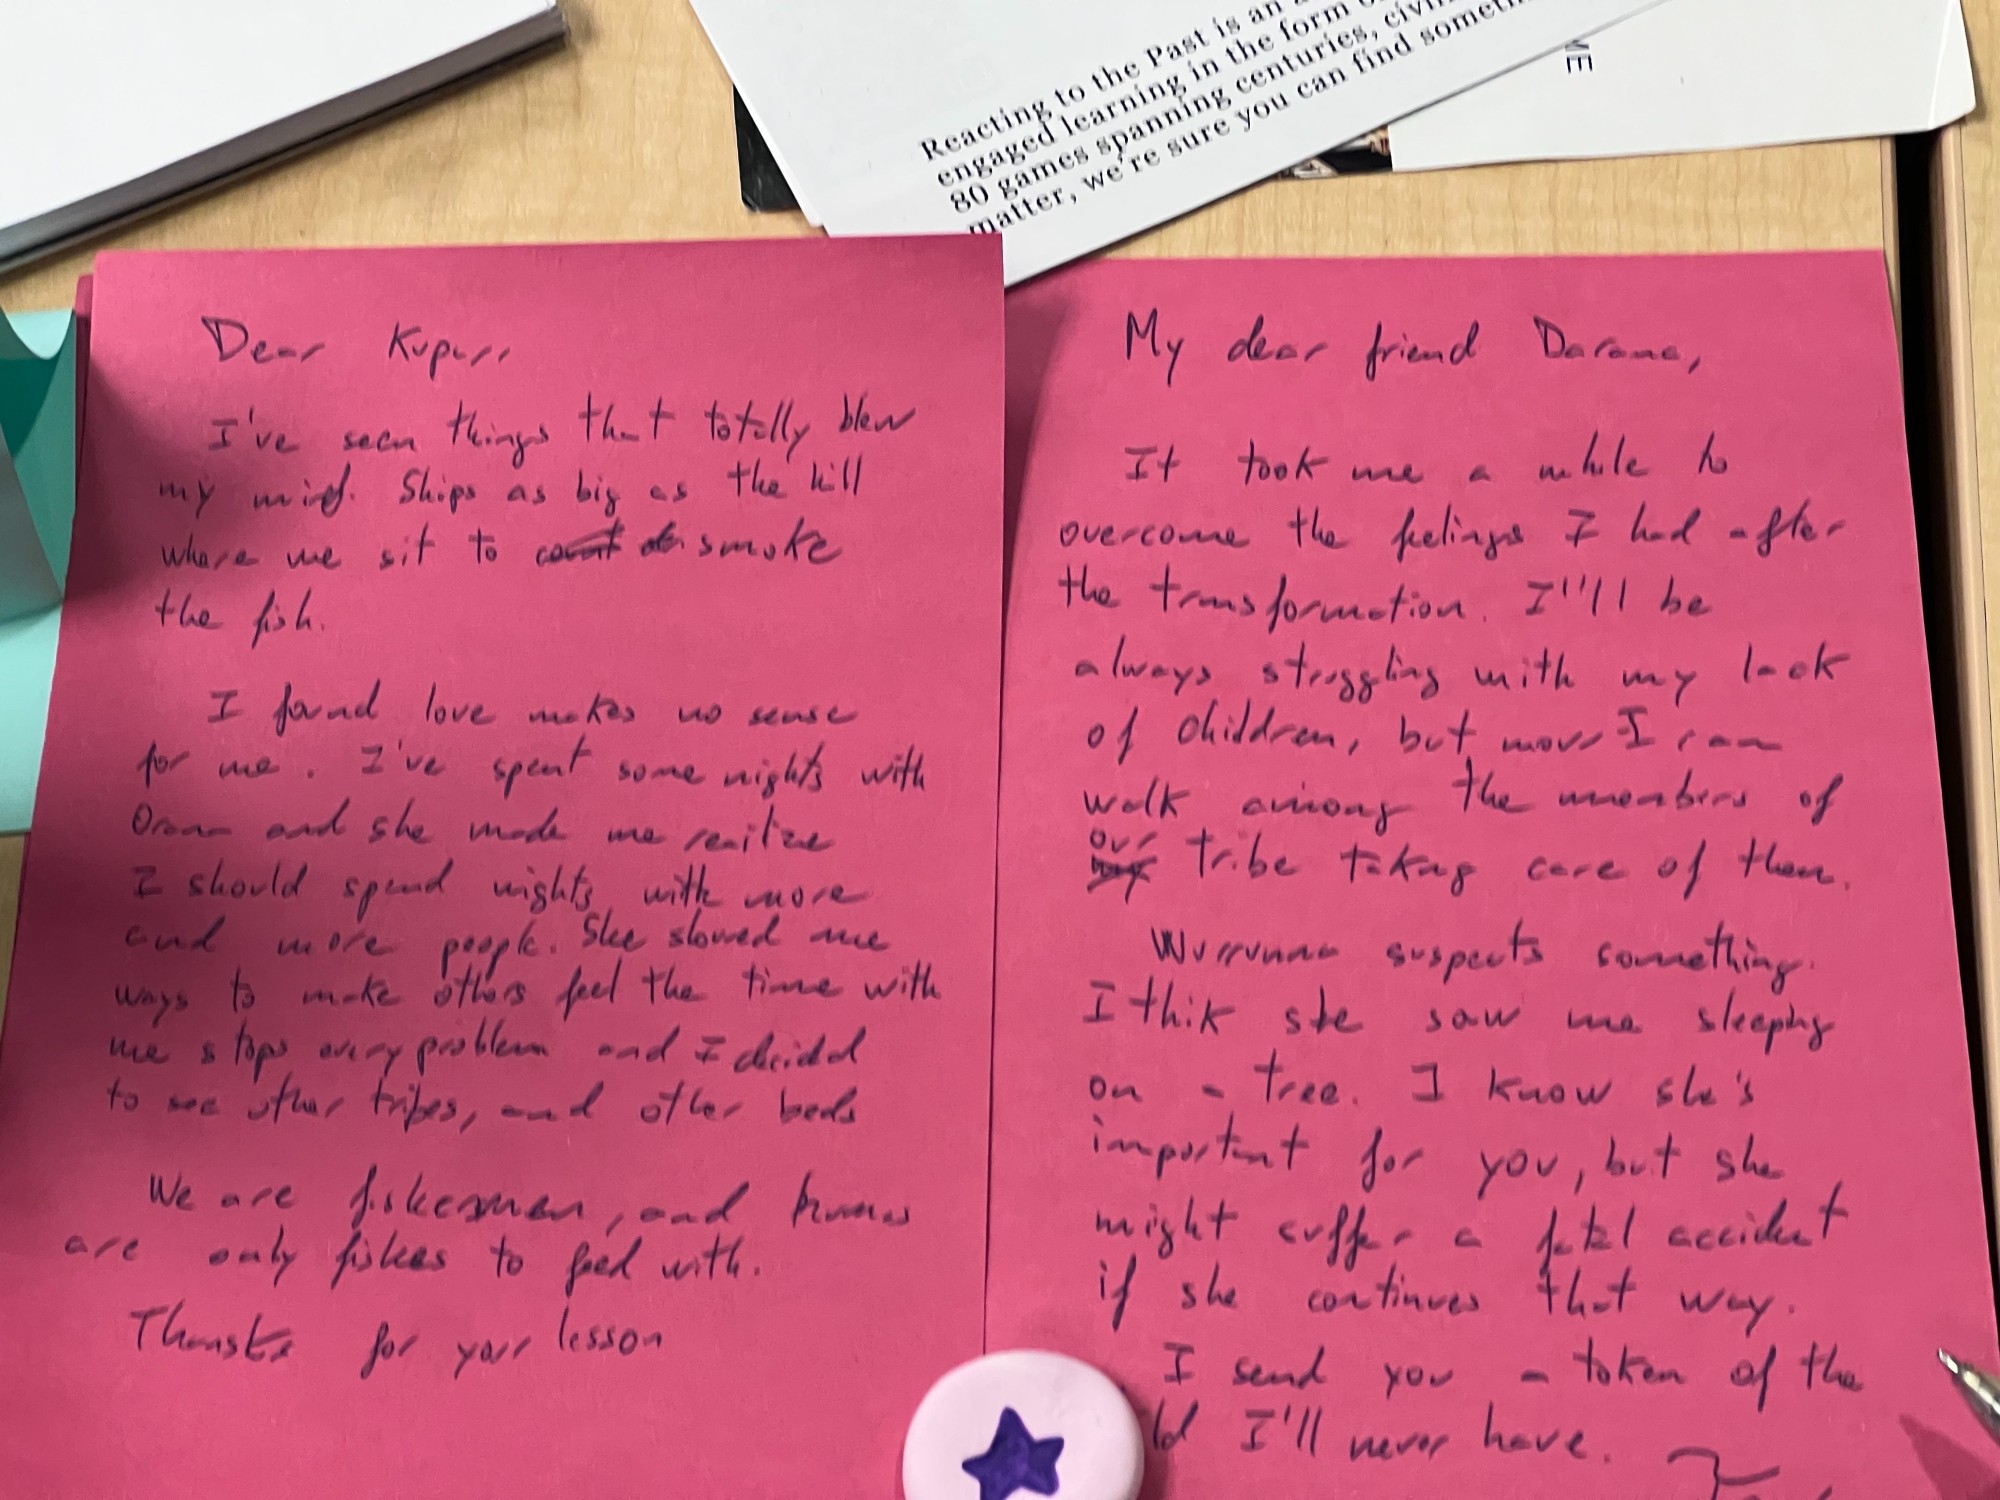 Reacting to the Past is an
engaged learning in the form
80 games spanning centuries,
matter, we're sure you can find
ME
Dear
I've seen things that totally blew
my mind. Ships as big as the hill
where we sit to smoke
the fish.
I found love makes no sense
for me. I've spent some nights with
and she made me realize
I should spend nights with more
and more people. She showed me
ways to make others feel the time with
me stops every problem and I decided
to see other tribes, and other beds
We are fishermen, and
are only fishes to feed with.
Thanks for your lesson
My dear friend Darana,
It took me a while to
overcome the feelings I had after
the transformation. I'll be
always struggling with my lack
of children, but now I can
walk among the members of
our
tribe taking care of them.
Wurrunna suspects something.
I thik she saw me sleeping
on a tree. I know she's
important for you, but she
might suffer a fatal accident
if she continues that way.
I send you a token of the
I'll never have.